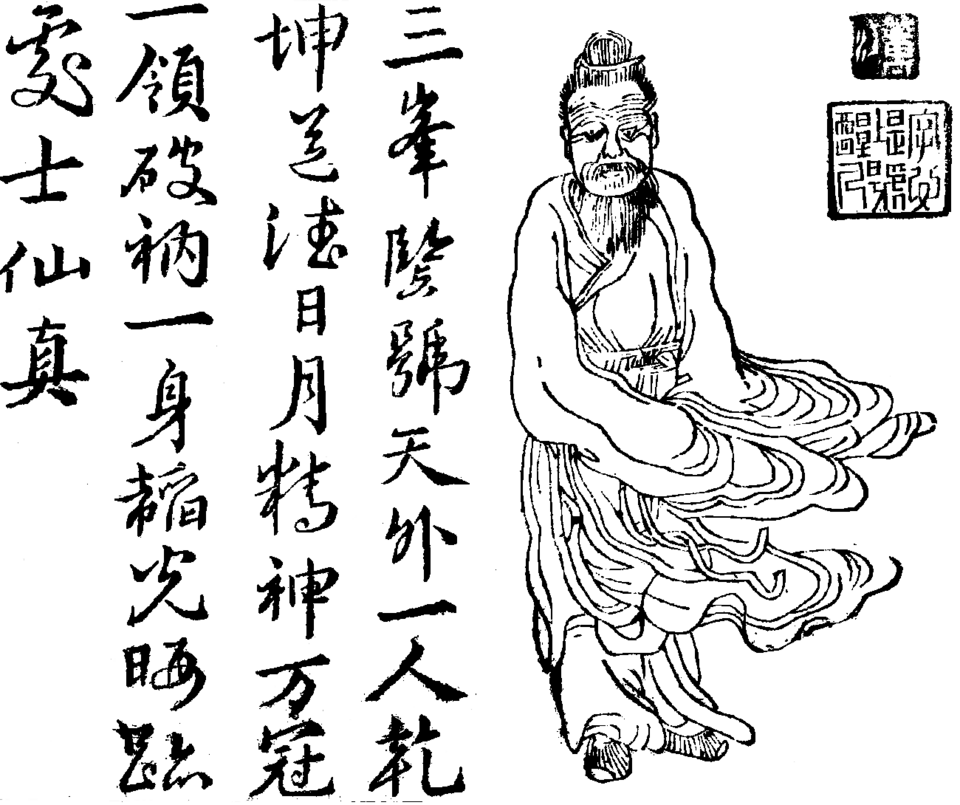 三峯竪號天外一人乾
坤道德日月精神万冠
一領破衲一身韜光晦跡
處士仙真